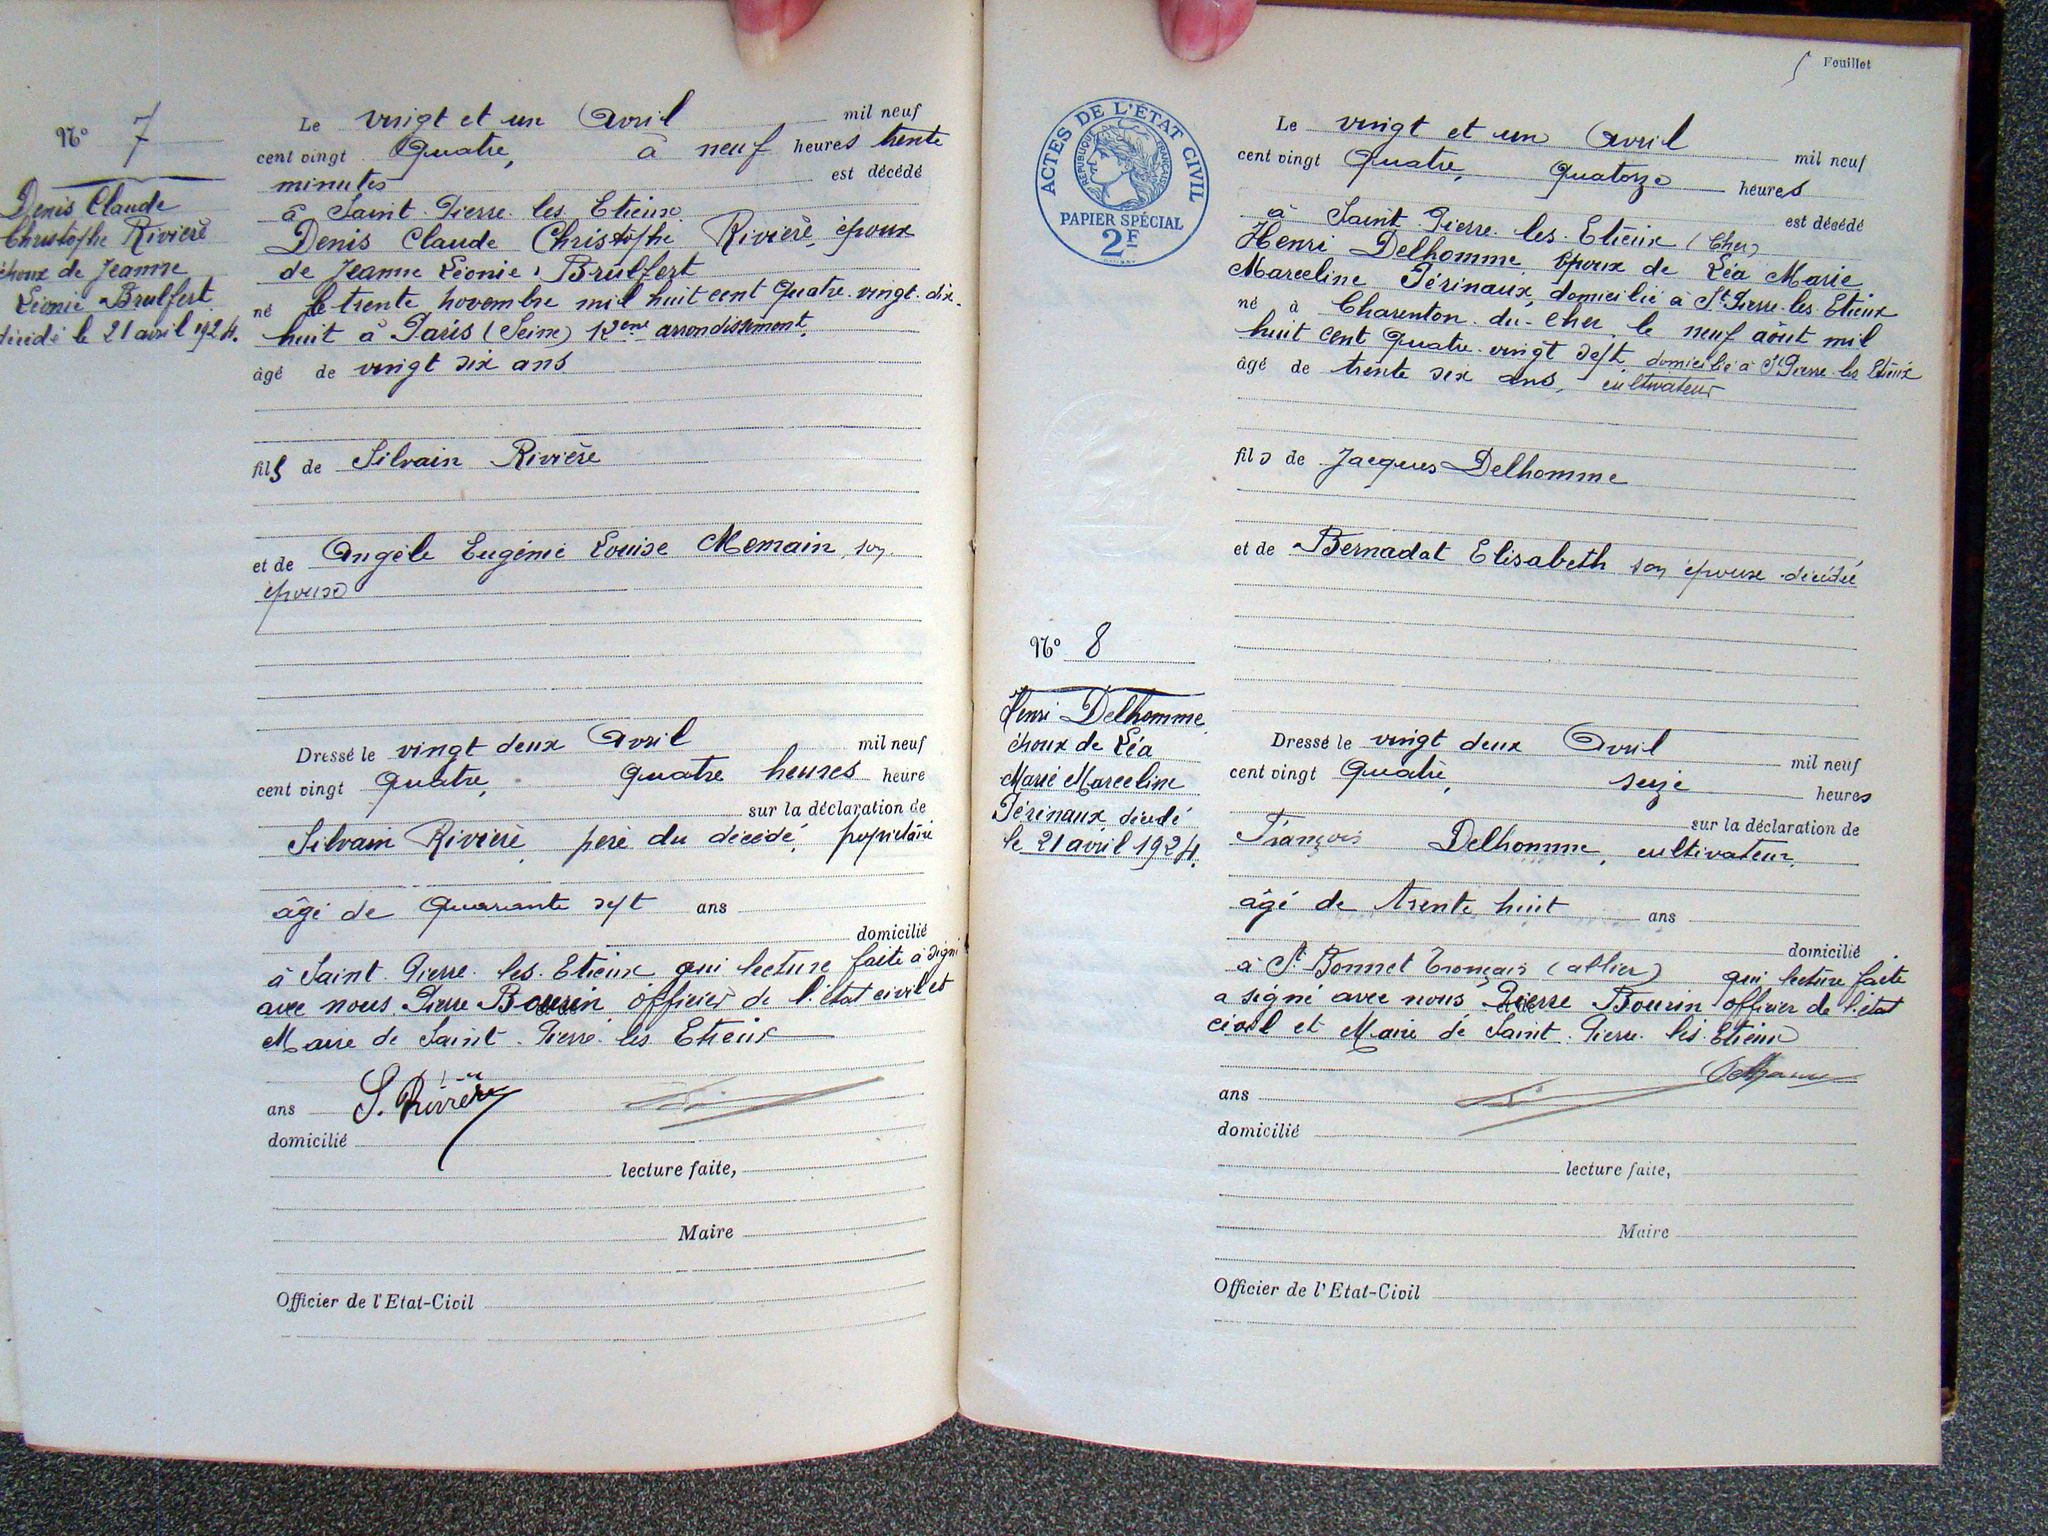 N° 7
Denis Claude
Christophe Rivière
époux de Jeanne
Léonie Brulfert
décédé le 21 avril 1924.
Le vingt et un Avril mil neuf
cent vingt Quatre, à neuf heures trente
minutes est décédé
à Saint-Pierre-les-Etieux
Denis Claude Christophe Rivière, époux
de Jeanne Léonie Brulfert
né le trente novembre mil huit cent quatre-vingt-dix-
huit à Paris (Seine) 12eme arrondissement
âgé de vingt six ans
fils de Silvain Rivière
et de Angèle Eugénie Louise Memain, son
épouse
Dressé le vingt deux Avril mil neuf
cent vingt quatre, quatre heures heure
sur la déclaration de
Silvain Rivière, père du décédé, propriétaire
âgé de Quarante sept ans
domicilié
à Saint-Pierre-les-Etieux qui lecture faite a signé
avec nous Pierre Bourin officier de l'état civil et
Maire de Saint-Pierre-les Etieux
ans S. Rivière
domicilié
lecture faite,
Maire
Officier de l'Etat-Civil
Feuillet
ACTES DE L'ÉTAT CIVIL
RÉPUBLIQUE FRANÇAISE
PAPIER SPÉCIAL
2F
Le vingt et un Avril mil neuf
cent vingt Quatre, Quatorze heures
est décédé
à Saint Pierre-les-Etieux (Cher)
Henri Delhomme, époux de Léa Marie
Marceline Périnaux, domicilié à St Pierre-les-Etieux
né à Charenton-du-Cher le neuf août mil
huit cent quatre-vingt sept, domicilié à St Pierre-les Etieux
âgé de trente six ans, cultivateur
fils de Jacques Delhomme
et de Bernadat Elisabeth son épouse décédée
N° 8
Henri Delhomme
époux de Léa
Marie Marceline
Périnaux, décédé
le 21 avril 1924.
Dressé le vingt deux Avril mil neuf
cent vingt Quatre, seize heures
sur la déclaration de
François Delhomme, cultivateur,
âgé de trente huit ans
domicilié
à St Bonnet Tronçais (allier) qui lecture faite
a signé avec nous Pierre Bourin officier de l'état
civil et Maire de Saint-Pierre-les-Etieux
Delhomme
ans
domicilié
lecture faite,
Maire
Officier de l'Etat-Civil